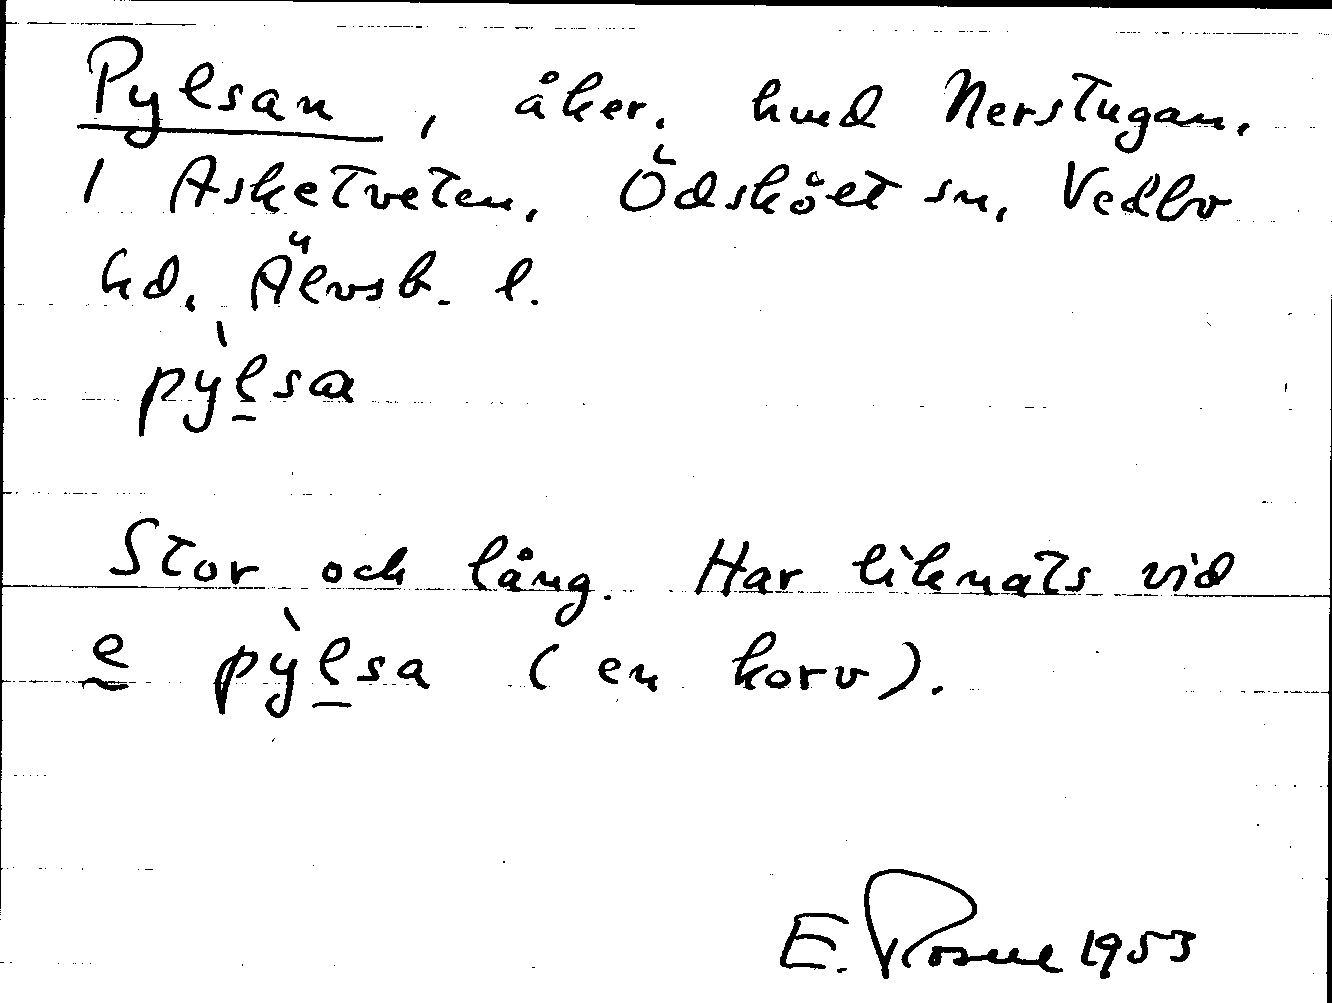 Pylsan, åker, hmd Nerstugan,
1 Asketveten, Ödskölt sn, Vedbo
hd, Älvsb. l.
pỳl̠sa
Stor och lång. Har liknats vid
e pỳl̠sa (en korv).
E. Rosell 1953